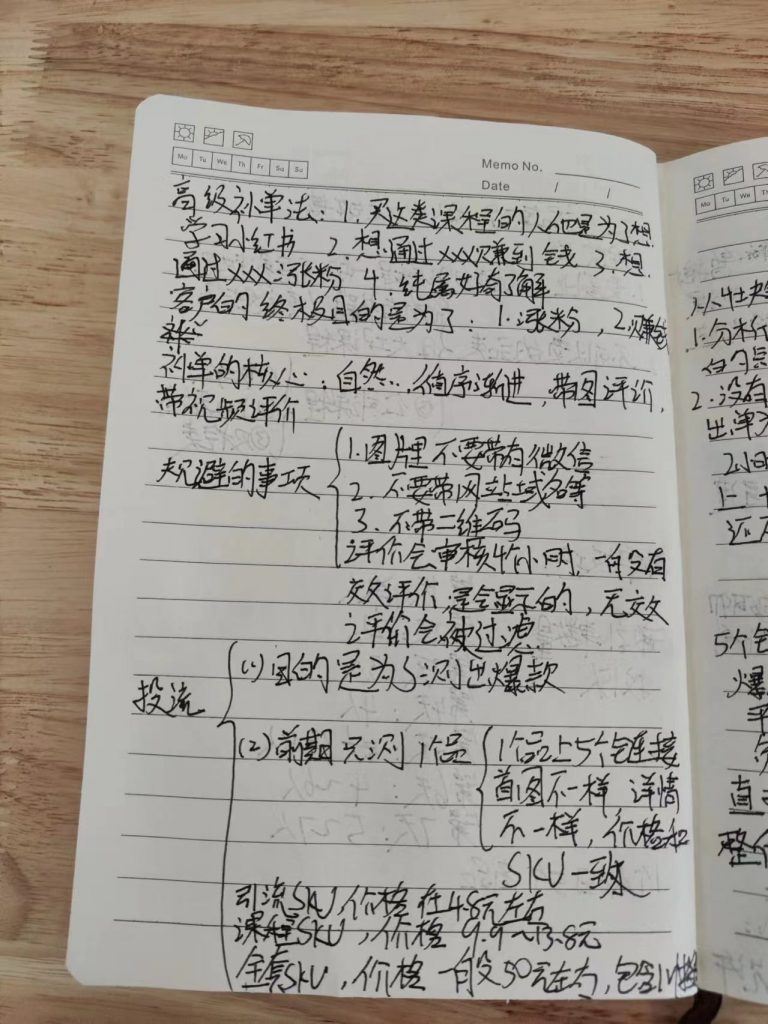 Mo Tu We Th Fr Sa Su
Memo No.
Date / /
高级补单法：1. 买这类课程的人他是为了想
学习小红书 2. 想通过xxx赚到钱 3. 想
通过xxx涨粉 4. 纯属好奇了解
客户的终极目的是为了：1. 涨粉，2. 赚钱
补单的核心：自然..，循序渐进，带图评价，
带视频评价
规避的事项
1. 图片里不要带有微信
2. 不要带网站域名等
3. 不带二维码
评价会审核4个小时，一般有
效评价，是会显示的，无效
评价会被过滤
投流
(1) 目的是为了测出爆款
(2) 前期只测1个品
1个品上5个链接
首图不一样 详情
不一样，价格和
SKU一致
引流SKU，价格在4.8元左右
课程SKU，价格9.9~13.8元
全套SKU，价格一般50元左右，包含
Mo Tu We Th
1. 分析
2. 没有
出单
5个
爆
平
直
整个